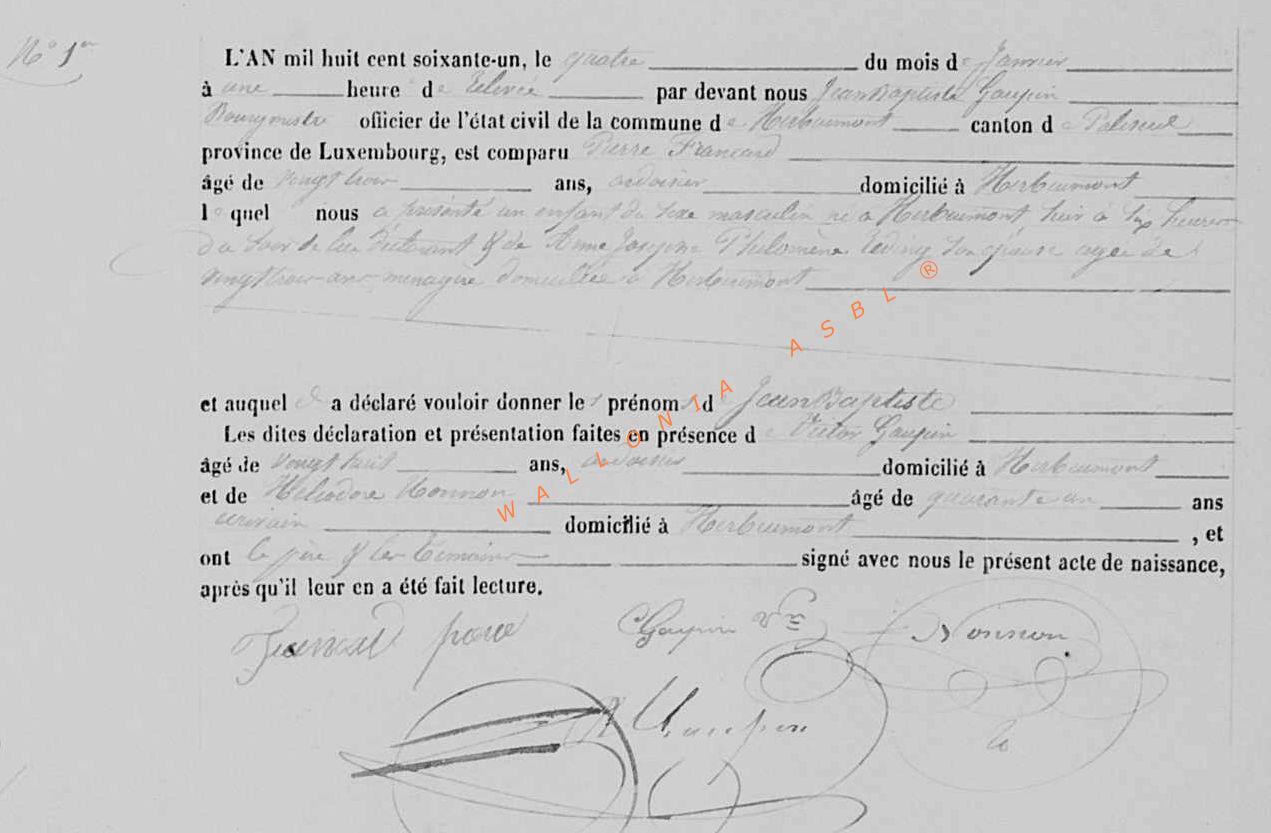 N° 1er
L'AN mil huit cent soixante-un, le quatre du mois de Janvier
à une heure de Relevée par devant nous Jean Baptiste Gaupin
Bourgmestre officier de l'état civil de la commune de Herbeumont canton de Paliseul
province de Luxembourg, est comparu Pierre Francard
âgé de vingt trois ans, ardoisier domicilié à Herbeumont
le quel nous a présenté un enfant du sexe masculin né à Herbeumont, hier à six heures
du soir de lui Déclarant & de Anne Josephine Philomène son épouse agée de
vingt trois ans menagère domiciliée à Herbeumont
et auquel il a déclaré vouloir donner les prénoms de Jean Baptiste
Les dites déclaration et présentation faites en présence de Victor Gaupin
âgé de vingt huit ans, ardoisier domicilié à Herbeumont
et de Héliodore Nonnon âgé de quarante un ans
écrivain domicilié à Herbeumont, et
ont le père & les Témoins signé avec nous le présent acte de naissance,
après qu'il leur en a été fait lecture.
Francard père Gaupin Vr Nonnon
Gaupin
WALLONIA ASBL ®